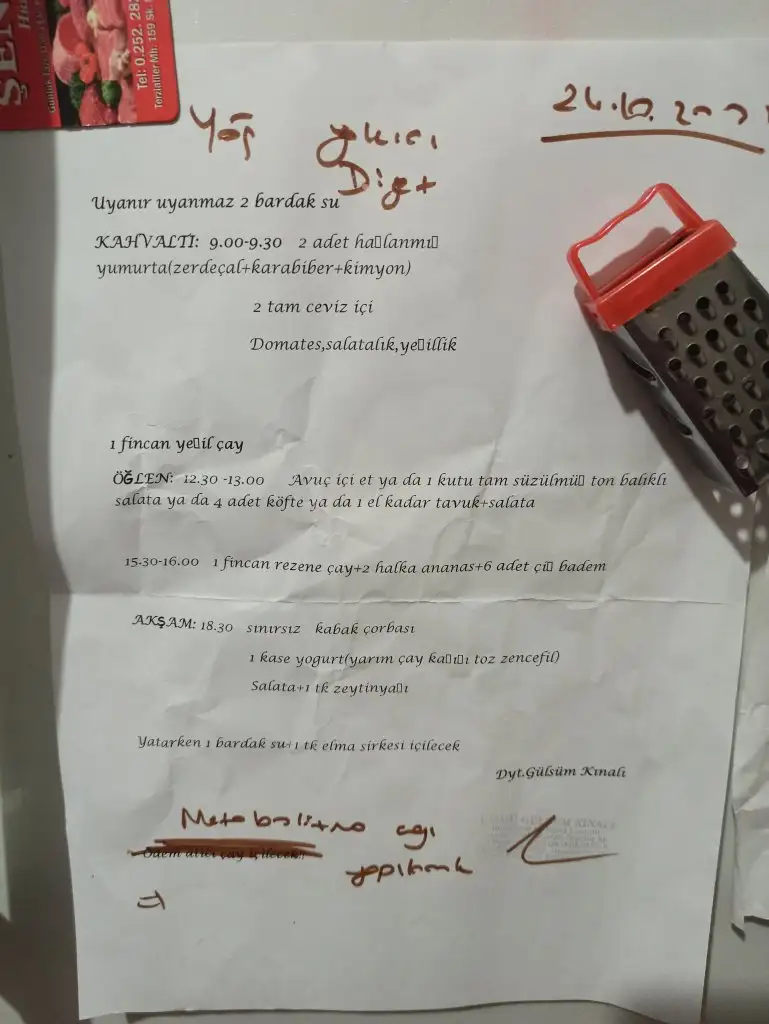 ŞEN
Tel: 0.252. 282
Terzialiler Mh. 159 Sk.
Yağ yakıcı
Diyet
Uyanır uyanmaz 2 bardak su
KAHVALTI: 9.00-9.30 2 adet ha▯lanmı▯
yumurta(zerdeçal+karabiber+kimyon)
2 tam ceviz içi
Domates,salatalık,ye▯illik
1 fincan ye▯il çay
ÖĞLEN: 12.30 -13.00 Avuç içi et ya da 1 kutu tam süzülmü▯ ton balıklı
salata ya da 4 adet köfte ya da 1 el kadar tavuk+salata
15.30-16.00 1 fincan rezene çay+2 halka ananas+6 adet çi▯ badem
AKŞAM: 18.30 sınırsız kabak çorbası
1 kase yogurt(yarım çay ka▯ı▯ı toz zencefil)
Salata+1 tk zeytinya▯ı
Yatarken 1 bardak su+1 tk elma sirkesi içilecek
Dyt.Gülsüm Kınalı
Metabolitmo
Ödem atıcı çay içilecek!